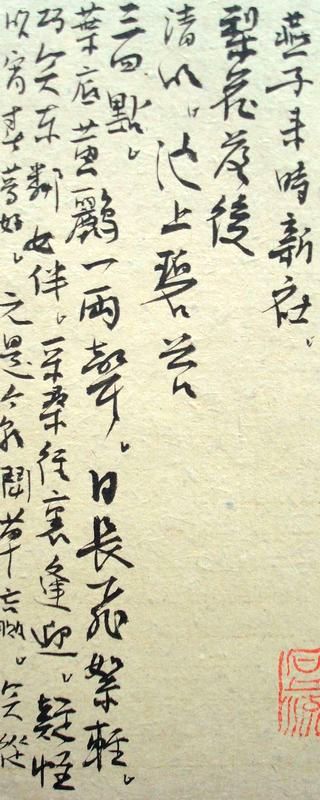 燕子来時新社。
梨花落後
清明。池上碧苔
三四點。
葉底黃鸝一兩聲。日長飛絮輕。
巧笑東鄰女伴。采桑徑裏逢迎。疑怪
昨宵春夢好。元是今朝鬥草贏。笑從